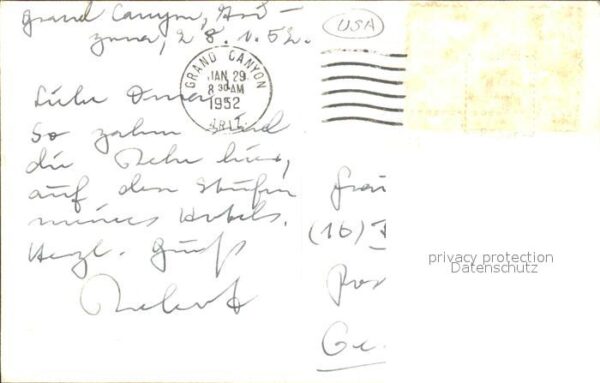 Grand Canyon, Ari-
zona, 28.1.52.
USA
GRAND CANYON
JAN 29
8 30 AM
1952
ARIZ.
Liebe Oma,
So zahm sind
die Rehe hier,
auf den Stufen
meines Hotels.
Herzl. Gruß
Frau
(16)
Ge
privacy protection
Datenschutz